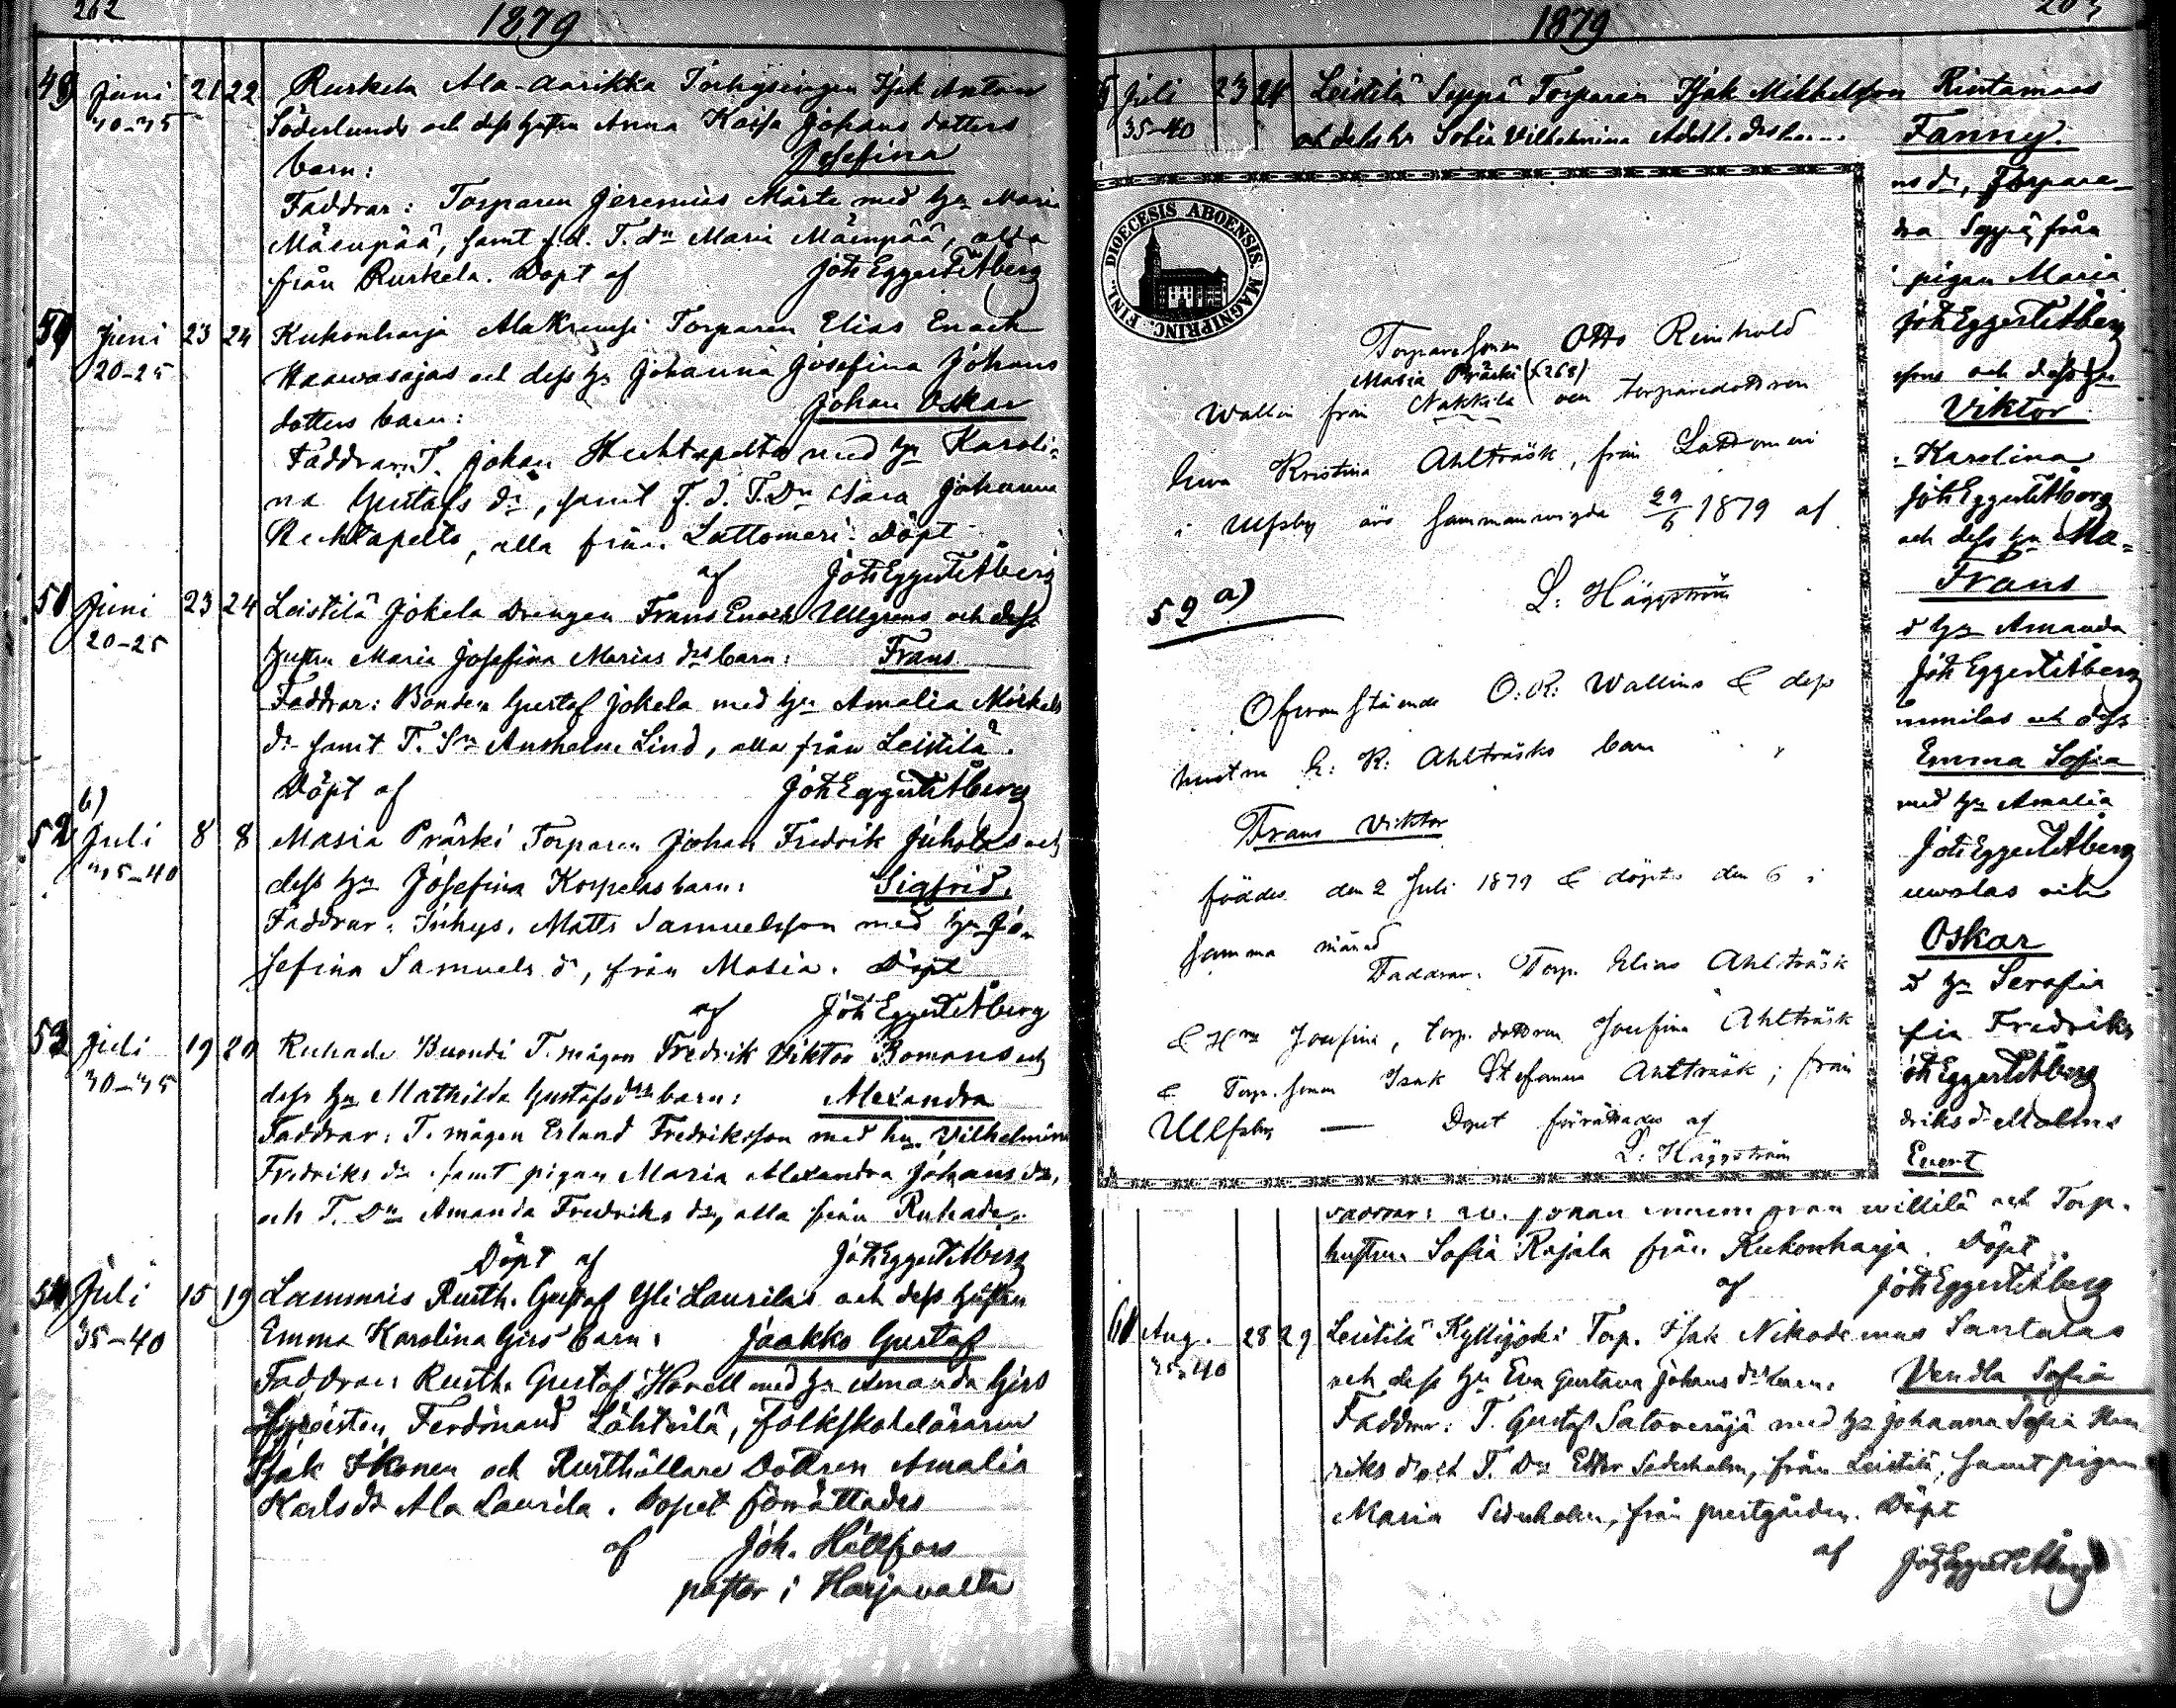 262
1879
49 Juni 21 22 Ruskela Ala-Aarikka Inhysingen Isak Anton
30-35 Söderlunds och dess hustru Anna Kaisa Johans dotters
barn: Josefina
Faddrar: Torparen Jeremias Märte med hu Maria
Mäenpää, samt f.d. T. dn Maria Mäenpää, alla
från Ruskela. Döpt af Joh Eggert Åberg
50 Juni 23 24 Kukonharja Torparen Elias Enoch
20-25 och dess hu Johanna Josefina Johans
dotters barn: Johan Oskar
Faddrar: T. Johan Huhtapelto med hu Karoli-
na Gustafs dr, samt T. Dn Johanna
Huhtapelto, alla från Lattomeri. Döpt
af Joh Eggert Åberg
51 Juni 23 24 Leistilä Jokela Drengen Frans Enoch Ullgrens och dess
20-25 hustru Maria Josefina Marias drs barn: Frans
Faddrar: Bonden Gustaf Jokela med hu Amalia Mickels
dr samt T. Sn Anshelm Lind, alla från Leistilä.
Döpt af Joh Eggert Åberg
b)
52 Juli 8 8 Masia Präski Torparen Johan Fredrik Juholas och
35-40 dess hu Josefina Korpelas barn: Sigfrid
Faddrar: Inhys. Matts Samuelsson med hu Jo-
sefina Samuels dr, från Masia. Döpt
af Joh Eggert Åberg
53 Juli 19 20 Ruhade Buondi T. mågen Fredrik Viktor Bomans och
30-35 dess hu Mathilda Gustafs drs barn: Alexandra
Faddrar: T. mågen Erland Fredriksson med hu Vilhelmina
Fredriks dr samt pigan Maria Alexandra Johans dr,
och T. Dn Amanda Fredriks dr, alla från Ruhade.
Döpt af Joh Eggert Åberg
54 Juli 15 19 Lammais Rusth. Gustaf Yli Laurilas och dess hustru
35-40 Emma Karolina Girs barn: Jaakko Gustaf
Faddrar: Rusth. Gustaf Horell med hu Amanda Girs
Ferdinand Lähteilä, folkskoleläraren
Isak Ikonen och Rusthållare Dottren Amalia
Karls dr Ala Laurila. Dopet förrättades
af Joh. Hällfors
pastor i Harjavalta
1879
Juli 23 24 Leistilä Seppä Torparen Isak Mikkelsson Rintamaas
35-40 och dess hu Sofia Vilhelmina Fanny.
FINL. DIOECESIS ABOENSIS MAGNIPRINC.
Torparesonen Otto Reinhold
Masia Präski (s 268)
Wallin från Nakkila och torparedottren
Eva Kristina Ahlträsk, från Lattomeri
i Ulfsby äro sammanvigda 29/6 1879 af
L: Häggström
52 a)
Ofvanstående O: R: Wallins & dess
hustru E: K: Ahlträsks barn
Frans Viktor
föddes den 2 Juli 1879 & döptes den 6 i
samma månad
Faddrar: Torp. Elias Ahlträsk
& Hru Josefina, torp. dottren Josefina Ahlträsk
& Torp. sonen Isak Stefanus Ahlträsk; från
Ulfsby — Dopet förrättades af
L: Häggström
ns dr, Torpare-
dra Seppä, från
pigan Maria
Joh Eggert Åberg
sons och dess hu
Viktor
Karolina
Joh Eggert Åberg
och dess hu Ma-
Frans
d hu Amanda
Joh Eggert Åberg
och dess
Emma Sofia
med hu Amalia
Joh Eggert Åberg
och
Oskar
d hu Serafia
fia Fredriks
Joh Eggert Åberg
driks dr Malms
Evert
Willilä och Torp.
hustrun Sofia Rajala från Kukonharja. Döpt
af Joh Eggert Åberg
60 Aug. 28 29 Leistilä Kyllijoki Torp. Isak Nikodemus Santalas
35-40 och dess hu Eva Gustava Johans drs barn. Vendla Sofia
Faddrar: T. Gustaf Satoveräjä med hu Johanna Sofia Hen
riks dr och T. Dn Ester Sederholm, från Leistilä, samt pigan
Maria Sederholm, från prestgården. Döpt
af Joh Eggert Åberg